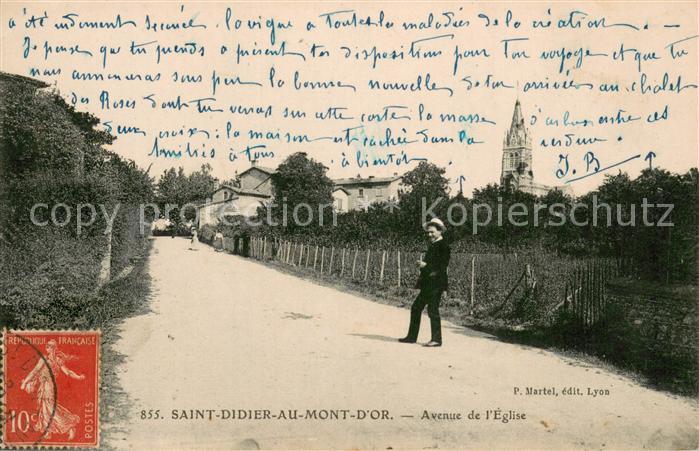 a été indment secouée. la vigne a toutes la maladies de la création. —
Je pense que tu prends a present tes dispositions pour ton voyage et que tu
nous annonceras sous peu la bonne nouvelle de ton arrivée au chalet
des Roses dont tu verras sur cette carte la masse d'arbres entre ces
deux croix : la maison est cachée dans la verdure.
Amitiés à tous à bientôt J. B
copyright protection Kopierschutz
REPUBLIQUE FRANÇAISE
10c
POSTES
P. Martel, édit. Lyon
855. SAINT-DIDIER-AU-MONT-D'OR. — Avenue de l'Église